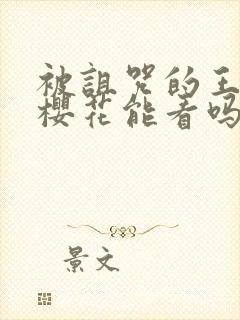 被诅咒的王
樱花能看吗
景文